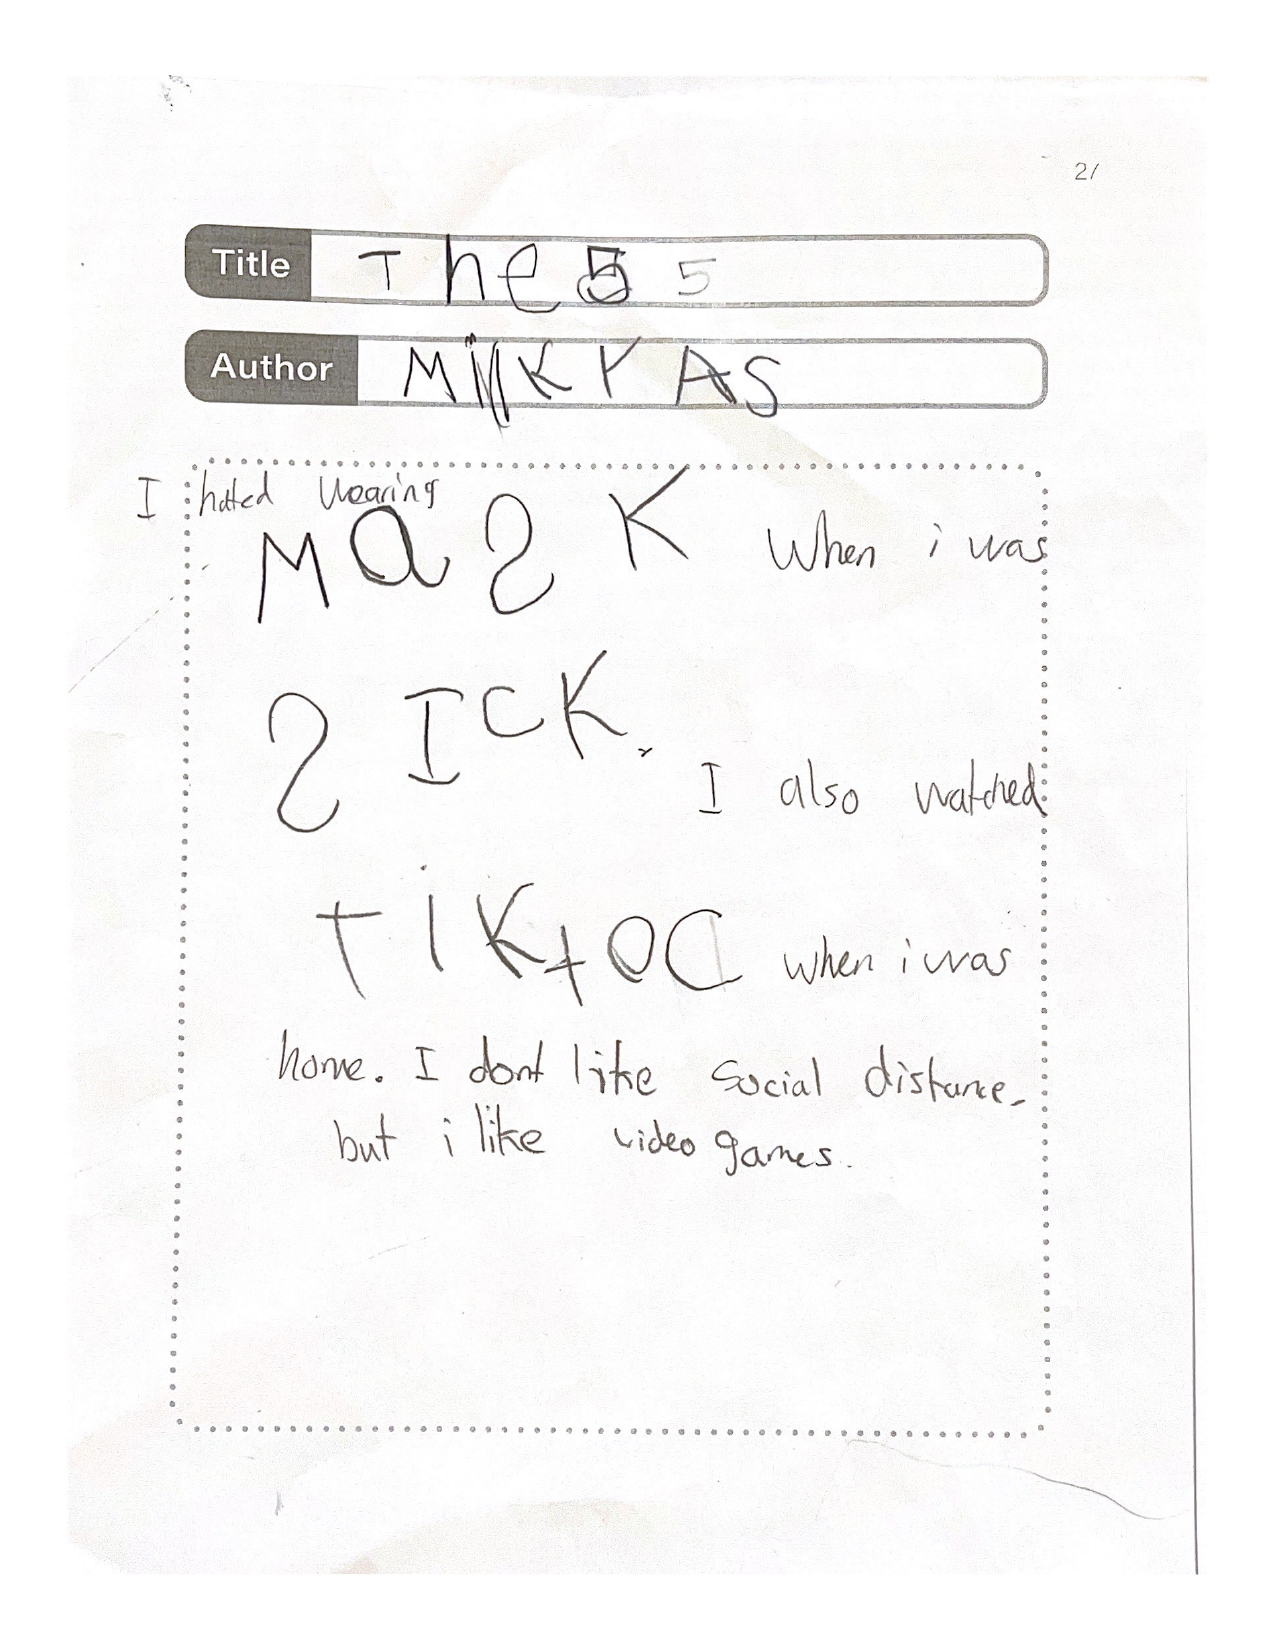 21
Title The 5 5
Author MilKYAS
I hated wearing
MaSK when i was
SICK.
I also watched
TiKtoC when i was
home. I dont like social distance.
but i like video games.